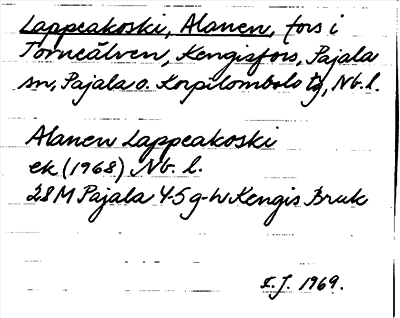 Lappeakoski, Alanen, fors i
Torneälven, Kengisfors, Pajala
sn, Pajala o. Korpilombolo tg, Nb. l.
Alanen Lappeakoski
ek (1968) Nb. l.
28M Pajala 4-5 g-h Kengis Bruk
I.J. 1969.